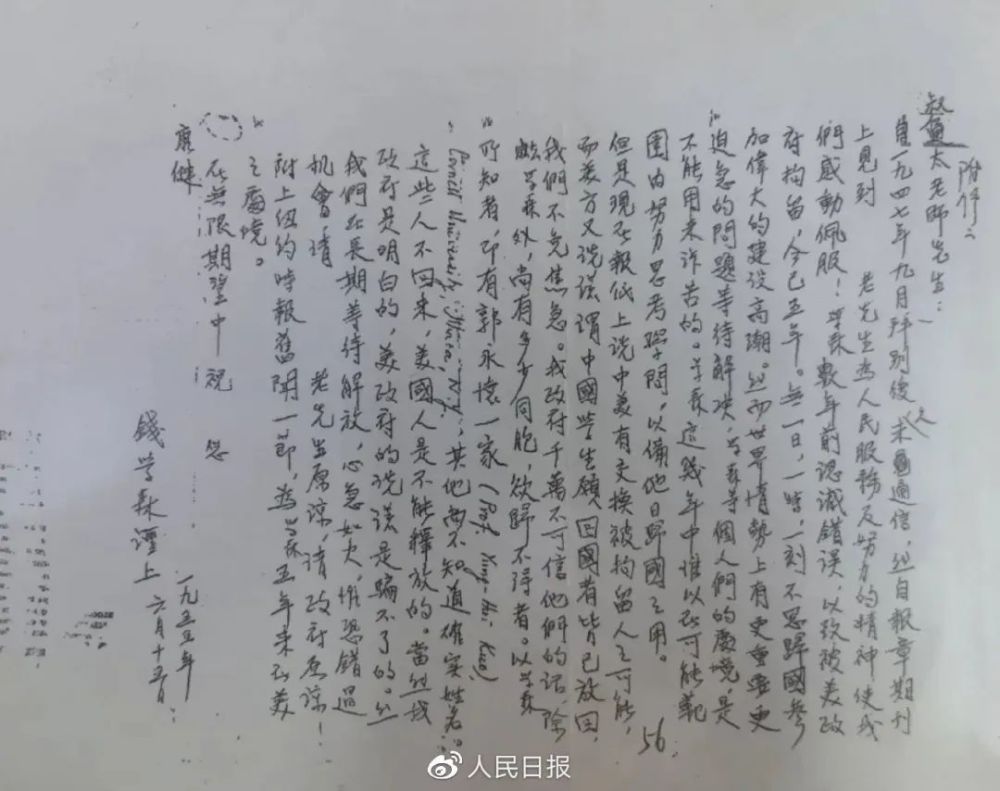 附件二
叔通太老師先生：
自一九四七年九月拜別後未通信，然自報章期刊
上見到 老先生為人民服務及努力的精神使我
們感動佩服！学森數年前認識錯誤，以致被美政
府拘留，今已五年。無一日，一時，一刻不思歸國參
加偉大的建設高潮。然而世界情勢上有更重要更
迫急的問題等待解决，学森等個人們的處境，是
不能用来诉苦的。学森這幾年中惟以在可能範
圍内努力思考學問，以備他日歸國之用。
但是現在報低上说中美有交換被拘留人之可能，
而美方又说谎謂中國学生願回國者皆已放回，
我們不免焦急。我政府千萬不可信他們的话，除
学森外，尚有多少同胞，欲歸不得者。以学森
所知者，即有郭永懷一家 (Prof. Yung-Huai Kuo,
Cornell University, Ithaca, N.Y.)，其他尚不知道確实姓名。
這些人不回来，美國人是不能釋放的。當然我
政府是明白的，美政府的说谎是騙不了的。然
我們在長期等待解放，心急如火，惟恐錯過
機會，请 老先生原谅，请政府原谅！
附上纽约時報舊聞一節，為学森五年来在美
之處境。
在無限期望中祝您
康健
錢学森谨上
一九五五年
六月十五日
56
人民日报